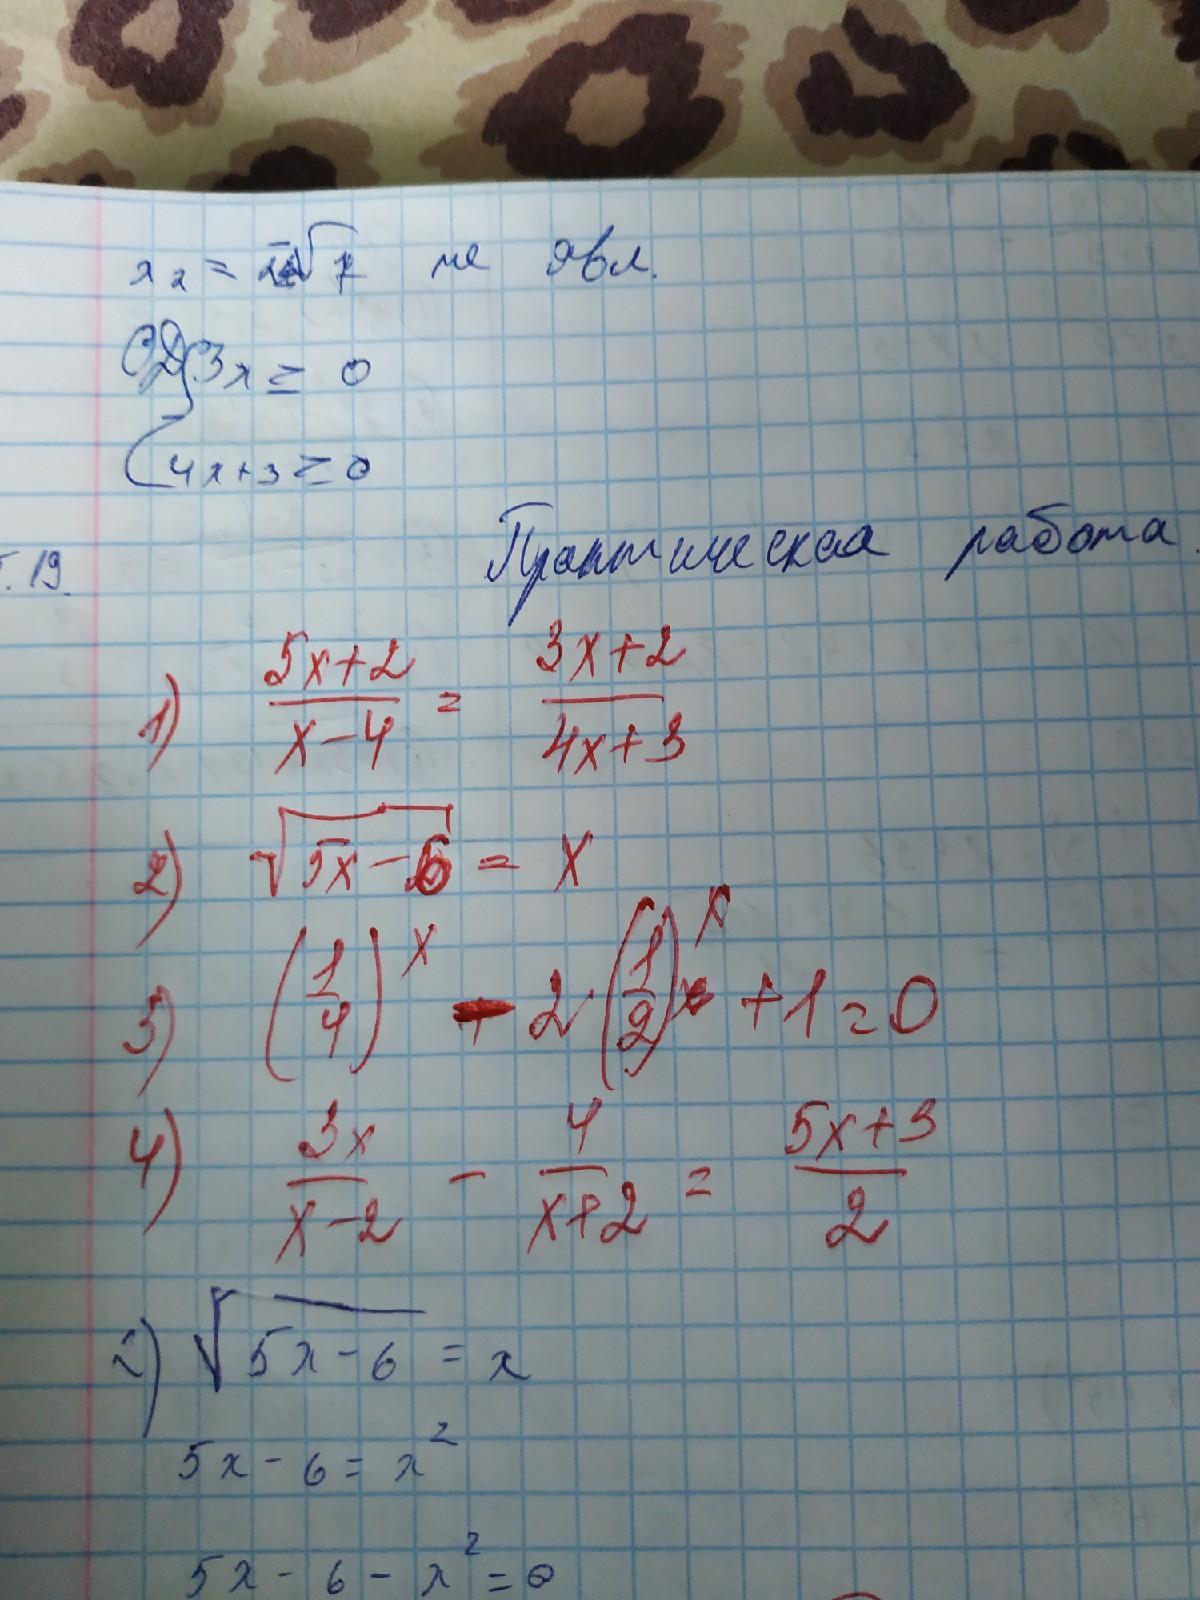 x₂ = -√7 не явл.
ОДЗ 3x ≥ 0
4x+3 ≥ 0
19. Практическая работа
1) (5x+2)/(x-4) = (3x+2)/(4x+3)
2) √(5x-6) = x
3) (1/4)^x - 2·(1/2)^x + 1 = 0
4) 3x/(x-2) - 4/(x+2) = (5x+3)/2
2) √(5x-6) = x
5x - 6 = x²
5x - 6 - x² = 0